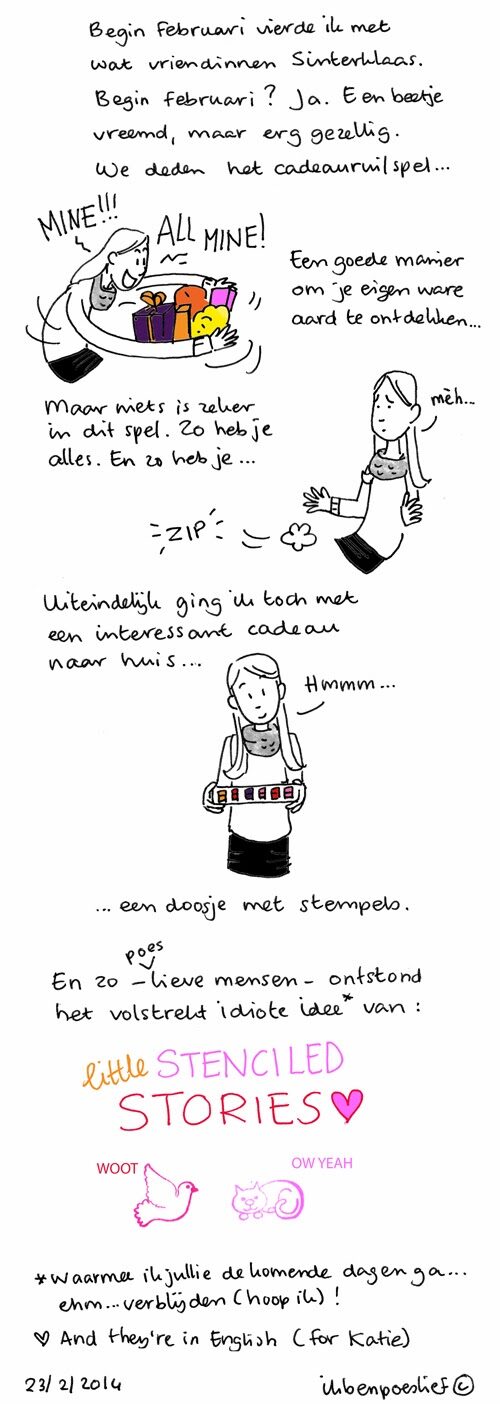 Begin februari vierde ik met
wat vriendinnen Sinterklaas.
Begin februari? Ja. Een beetje
vreemd, maar erg gezellig.
We deden het cadeauruilspel...
MINE!!!
ALL MINE!
Een goede manier
om je eigen ware
aard te ontdekken...
Maar niets is zeker
in dit spel. Zo heb je
alles. En zo heb je...
mèh...
ZIP
Uiteindelijk ging ik toch met
een interessant cadeau
naar huis...
Hmmm...
...een doosje met stempels.
poes
En zo - lieve mensen - ontstond
het volstrekt idiote idee* van:
little STENCILED
STORIES ♥
WOOT
OW YEAH
*waarmee ik jullie de komende dagen ga...
ehm...verblijden (hoop ik)!
♡ And they're in English (for Katie)
23/2/2014
ikbenpoeslief ©